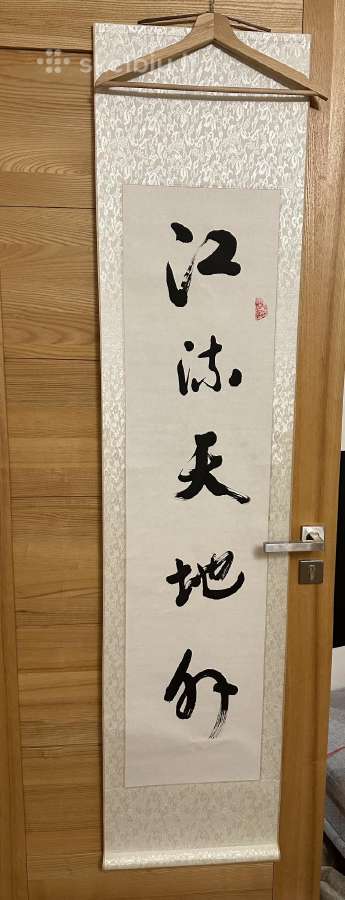 江流天地外
skelbiu.lt